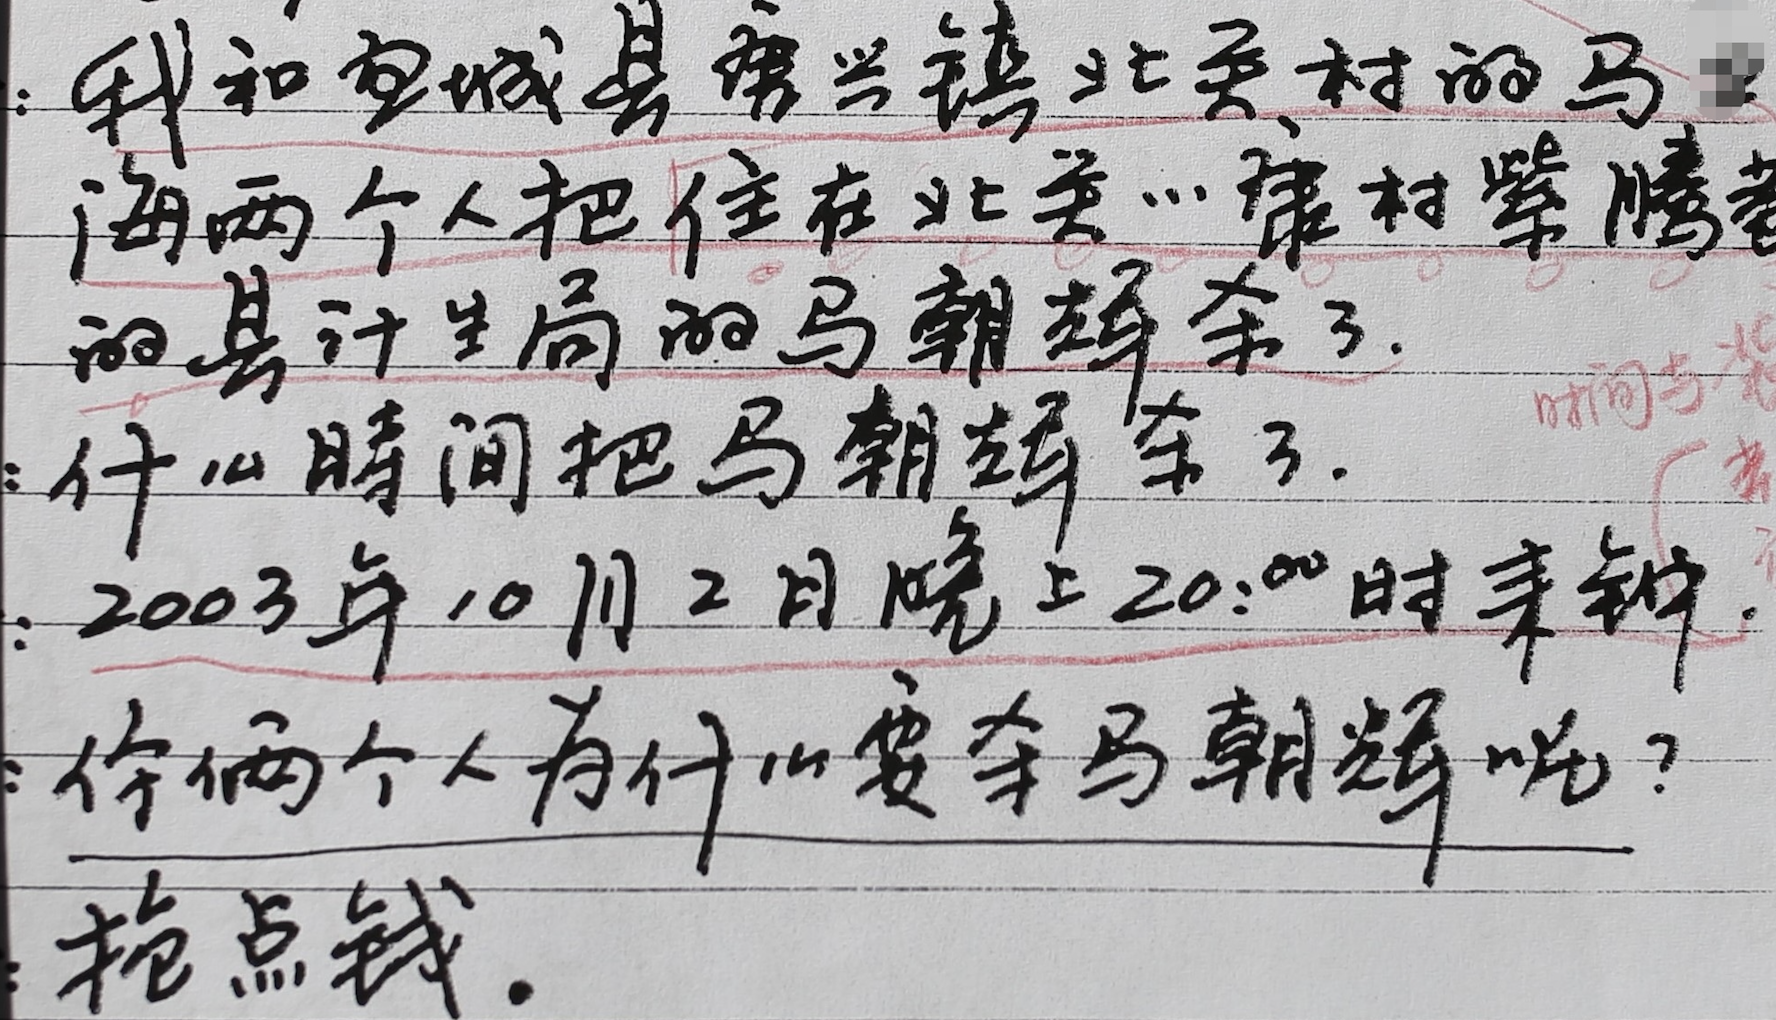 : 我和宜城县唐兴镇北关村的马
海两个人把住在北关…康村紫腾巷
的县计生局的马朝辉杀了.
时间与
: 什么時间把马朝辉杀了.
: 2003年10月2日晚上20:00时来钟.
: 你俩个人为什么要杀马朝辉呢?
: 抢点钱.